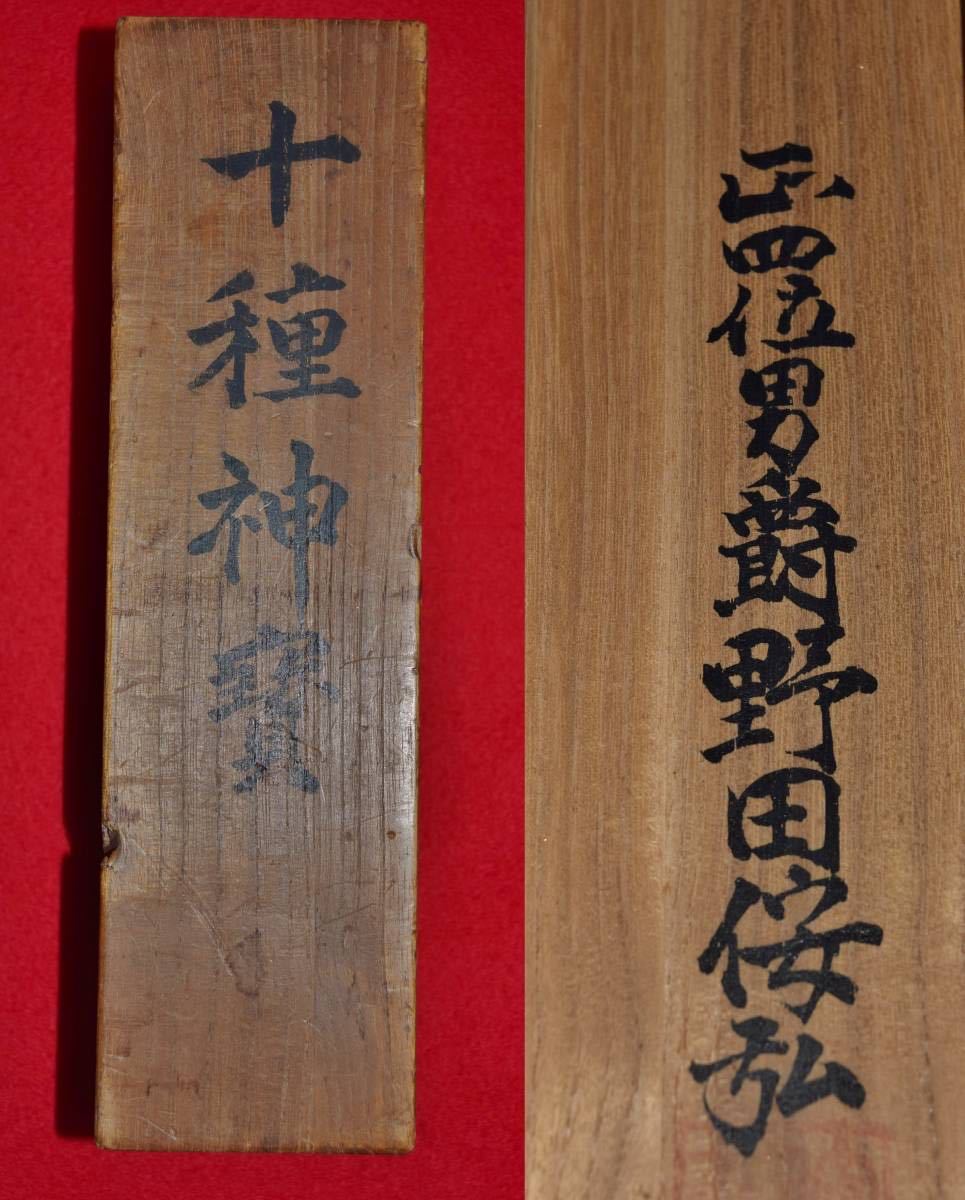 十種神寳
正四位男爵野田弘